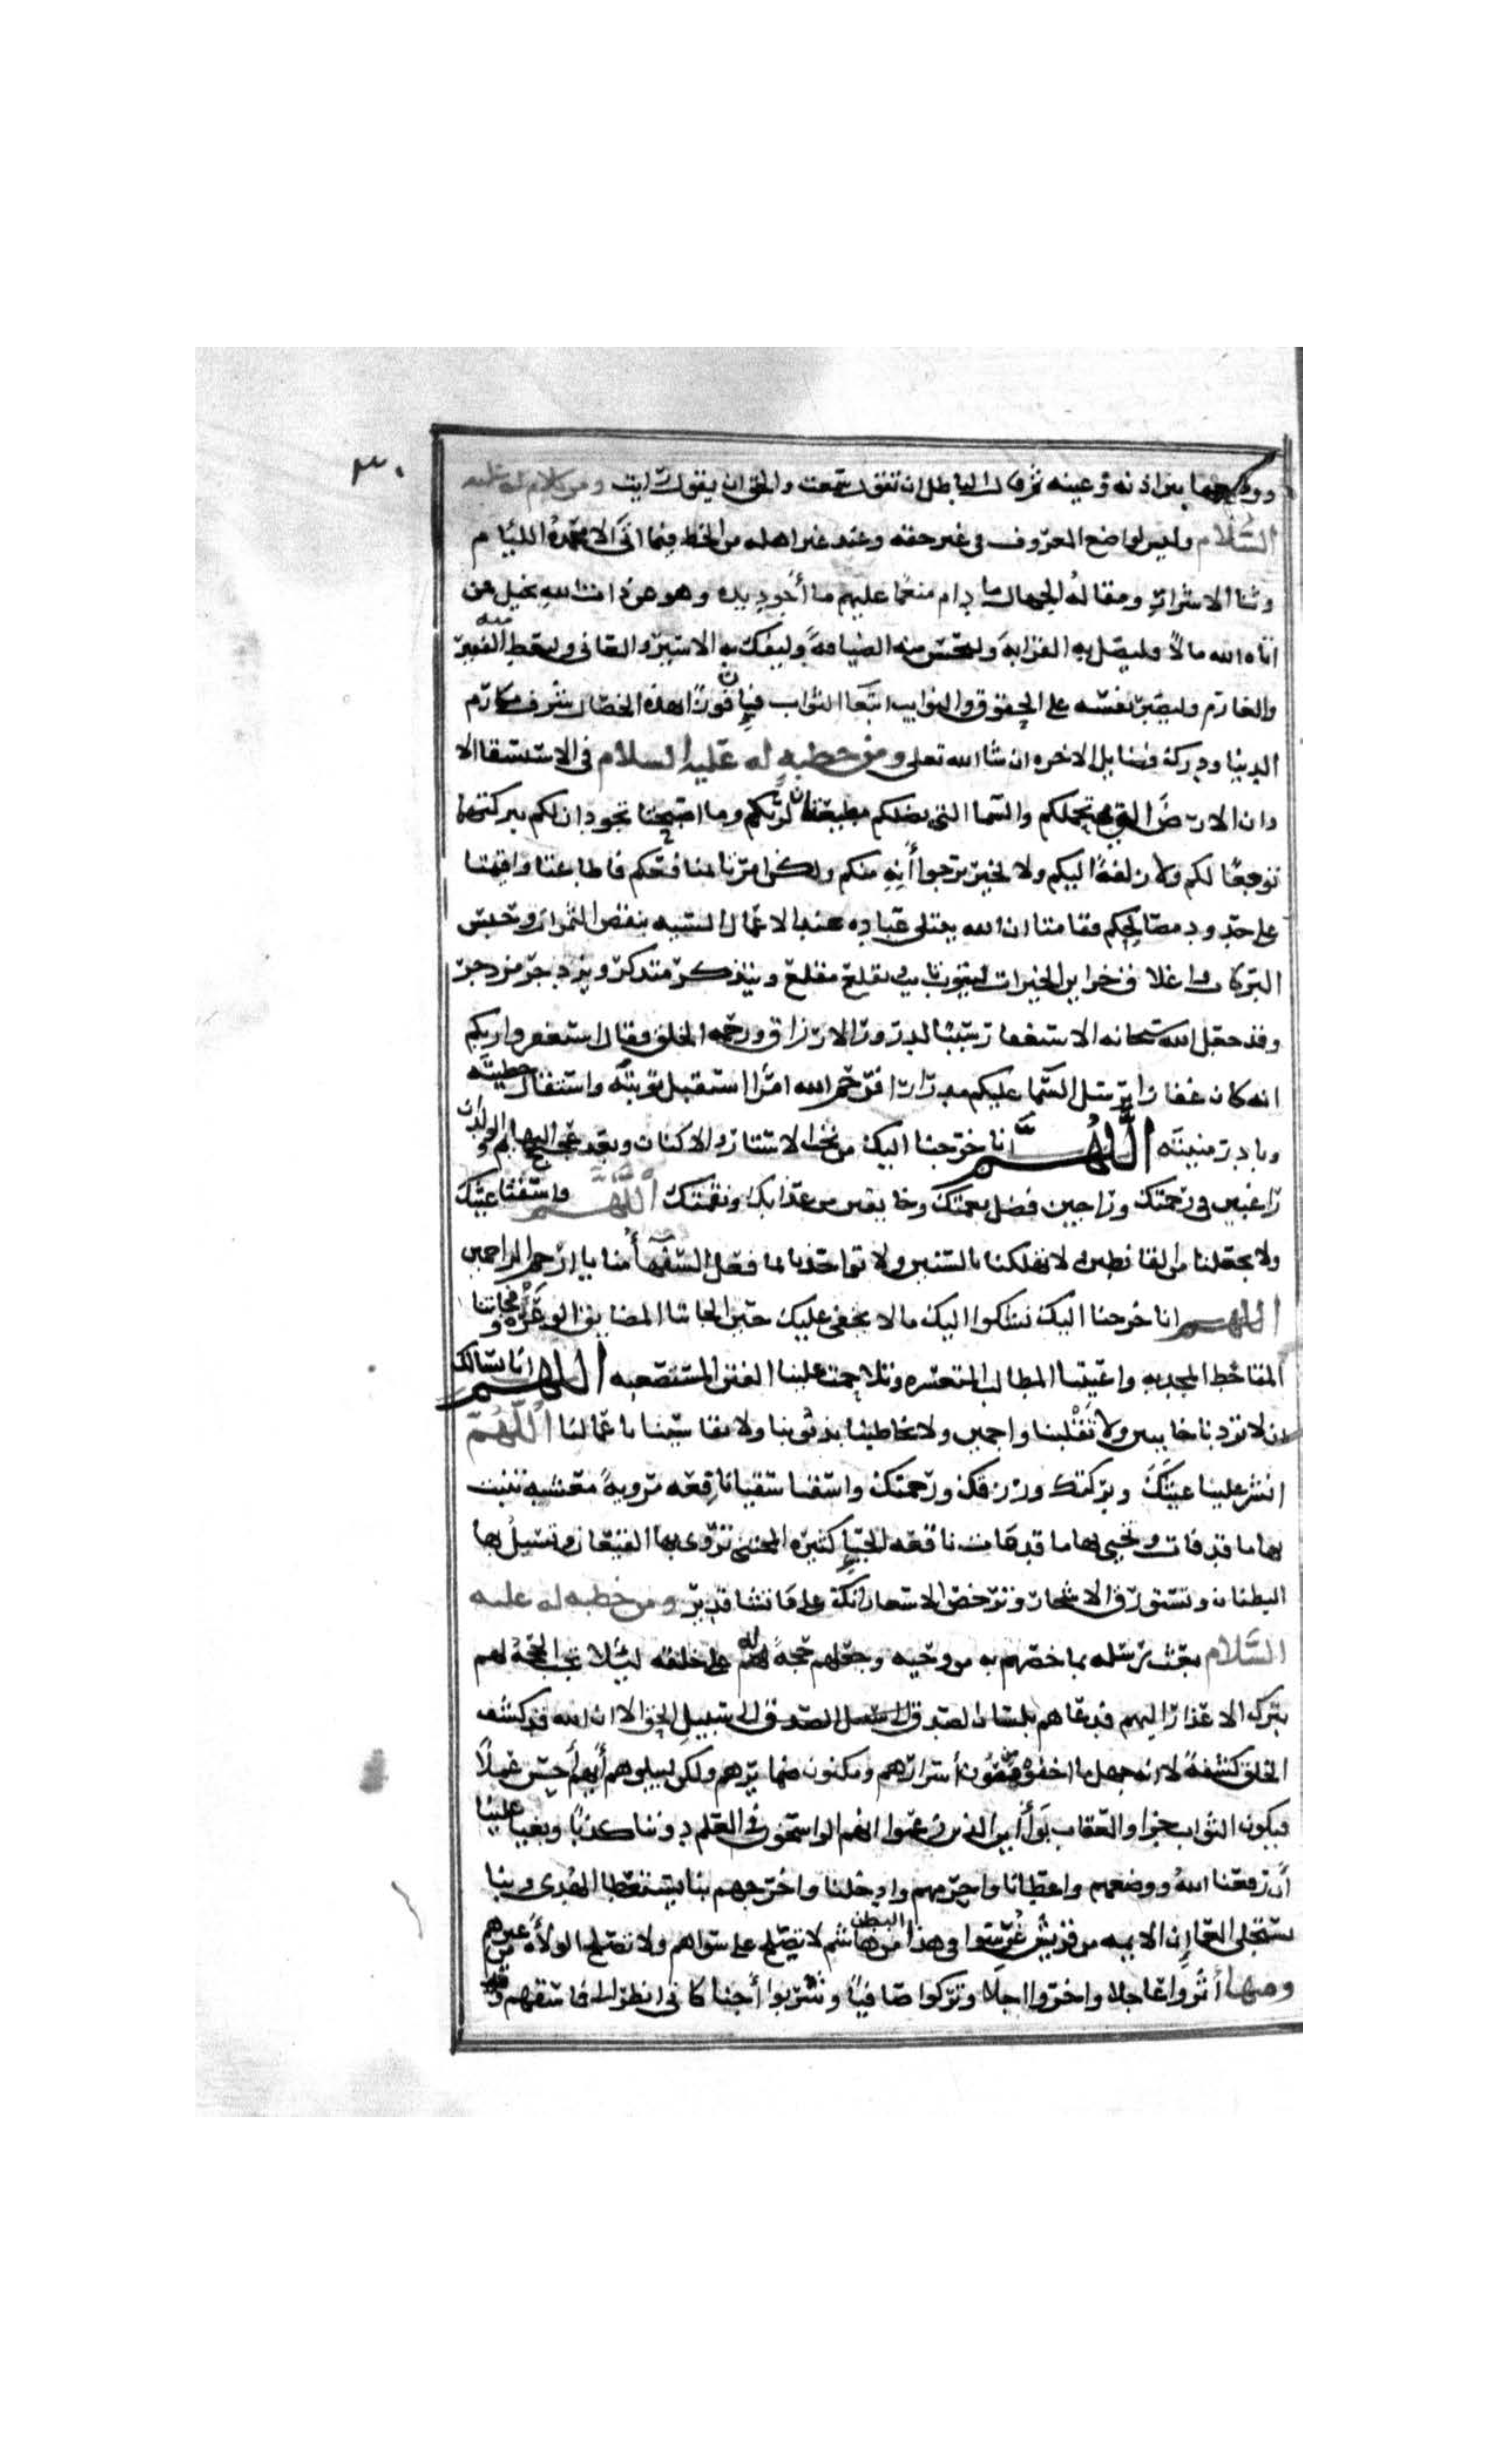 ٣٠
ووضعها بين اذنه وعينه ثم قال الباطل ان تقول سمعت والحق ان يقول رايت ومن كلام له عليه
السلام وليس لواضع المعروف في غير حقه وعند غير اهله من الحظ فيما اتى الا محمدة الليام
وثنا الاشرار ومقالة الجهال ما دام منعما عليهم ما أجود يده وهو عن ذات الله بخيل فمن
اتاه الله مالا فليصل به القرابة وليحسن منه الضيافة وليفك به الاسير والعاني وليعط منه الفقير
والغارم وليصبر نفسه على الحقوق والنوايب ابتغا الثواب فإن فوزا بهذه الخصال شرف مكارم
الدنيا ودرك فضايل الاخره ان شا الله تعلى ومن خطبة له عليه السلام في الاستسقا الا
وان الارض التي تحملكم والسما التي تظلكم مطيعتان لربكم وما اصبحتا تجودان لكم ببركتهما
توجعا لكم ولا زلفة اليكم ولا لخير ترجوانه منكم ولكن امرتا بمنافعكم فاطاعتا واقيمتا
على حدود مصالحكم فقامتا ان الله يبتلي عباده عند الاعمال السيه بنقص الثمرات وحبس
البركات واغلاق خزاين الخيرات ليتوب تايب ويقلع مقلع ويتذكر متذكر ويزدجر مزدجر
وقد جعل الله سبحانه الاستغفار سببا لدرور الارزاق ورحمة الخلق فقال استغفروا ربكم
انه كان غفارا يرسل السما عليكم مدرارا فرحم الله امرا استقبل توبته واستقال خطيته
وبادر منيته اللهم انا خرجنا اليك من تحت الاستار والاكنان وبعد عجيج البهايم والولدان
راغبين في رحمتك وراجين فضل نعمتك وخايفين من عذابك ونقمتك اللهم فاسقنا غيثك
ولا تجعلنا من القانطين ولا تهلكنا بالسنين ولا تواخذنا بما فعل السفهأ منا يا ارحم الراحمين
اللهم انا خرجنا اليك نشكوا اليك ما لا يخفى عليك حين الجاتنا المضايق الوعره وفجاتنا
المقاحط المجدبه واعيتنا المطالب المتعسره وتلاحمت علينا الفتن المستصعبه اللهم انا نسالك
ان لا تردنا خايبين ولا تقلبنا واجمين ولا تخاطبنا بذنوبنا ولا تقايسنا باعمالنا اللهم
انشر علينا غيثك وبركتك ورزقك ورحمتك واسقنا سقيا ناقعه مرويه معشبه تنبت
بها ما قد فات وتحيي بها ما قد مات ناقعه الحيا كثيره المجتنى تروى بها القيعان وتسيل بها
البطنان وتستورق الاشجار وترخص الاسعار انك على ما تشا قدير ومن خطبه له عليه
السلام بعث رسله بما خصهم به من وحيه وجعلهم حجة له على خلقه ليلا تجب الحجة لهم
بترك الاعذار اليهم فدعاهم بلسان الصدق الى سبيل الحق الا ان الله قد كشف
الخلق كشفة لا انه جهل ما اخفوه من مصون أسرارهم ومكنون ضمايرهم ولكن ليبلوهم أيهم أحسن عملا
فيكون الثواب جزا والعقاب بوأ أين الذين زعموا انهم الراسخون في العلم دوننا كذبا وبغيا علينا
أن رفعنا الله ووضعهم واعطانا واحرمهم وادخلنا واخرجهم بنا يستعطا الهدى وبنا
يستجلى العما إن الايمه من قريش غرسوا في هذا البطن من هاشم لا تصلح على سواهم ولا تصلح الولاة من غيرهم
ومنها أثروا عاجلا واخروا اجلا وتركوا صافيا وشربوا أجنا كاني انظر الى فاسقهم وقد